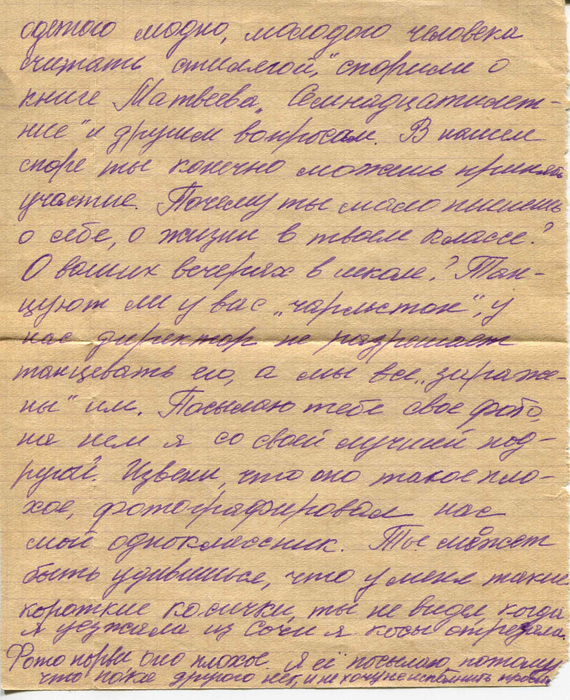 одетого модно, молодого человека
считать стилягой", спорили о
книге Матвеева „Семнадцатилет-
ние" и другим вопросам. В нашем
споре ты конечно можешь принять
участие. Почему ты мало пишешь
о себе, о жизни в твоем классе?
О ваших вечерах в школе? Тан-
цуют ли у вас „чарльстон", у
нас директор не разрешает
танцевать его, а мы все „зараже-
ны" им. Посылаю тебе свое фото,
на нем я со своей лучшей под-
ругой. Извени, что оно такое пло-
хое, фотографировал нас
мой одноклассник. Ты может
быть удивишься, что у меня такие
короткие косички, ты не видел когда
я уезжала из Сочи я косы отрезала.
Фото порви оно плохое. Я её посылаю, потому
что пока другого нет, и не хочу не исполнить